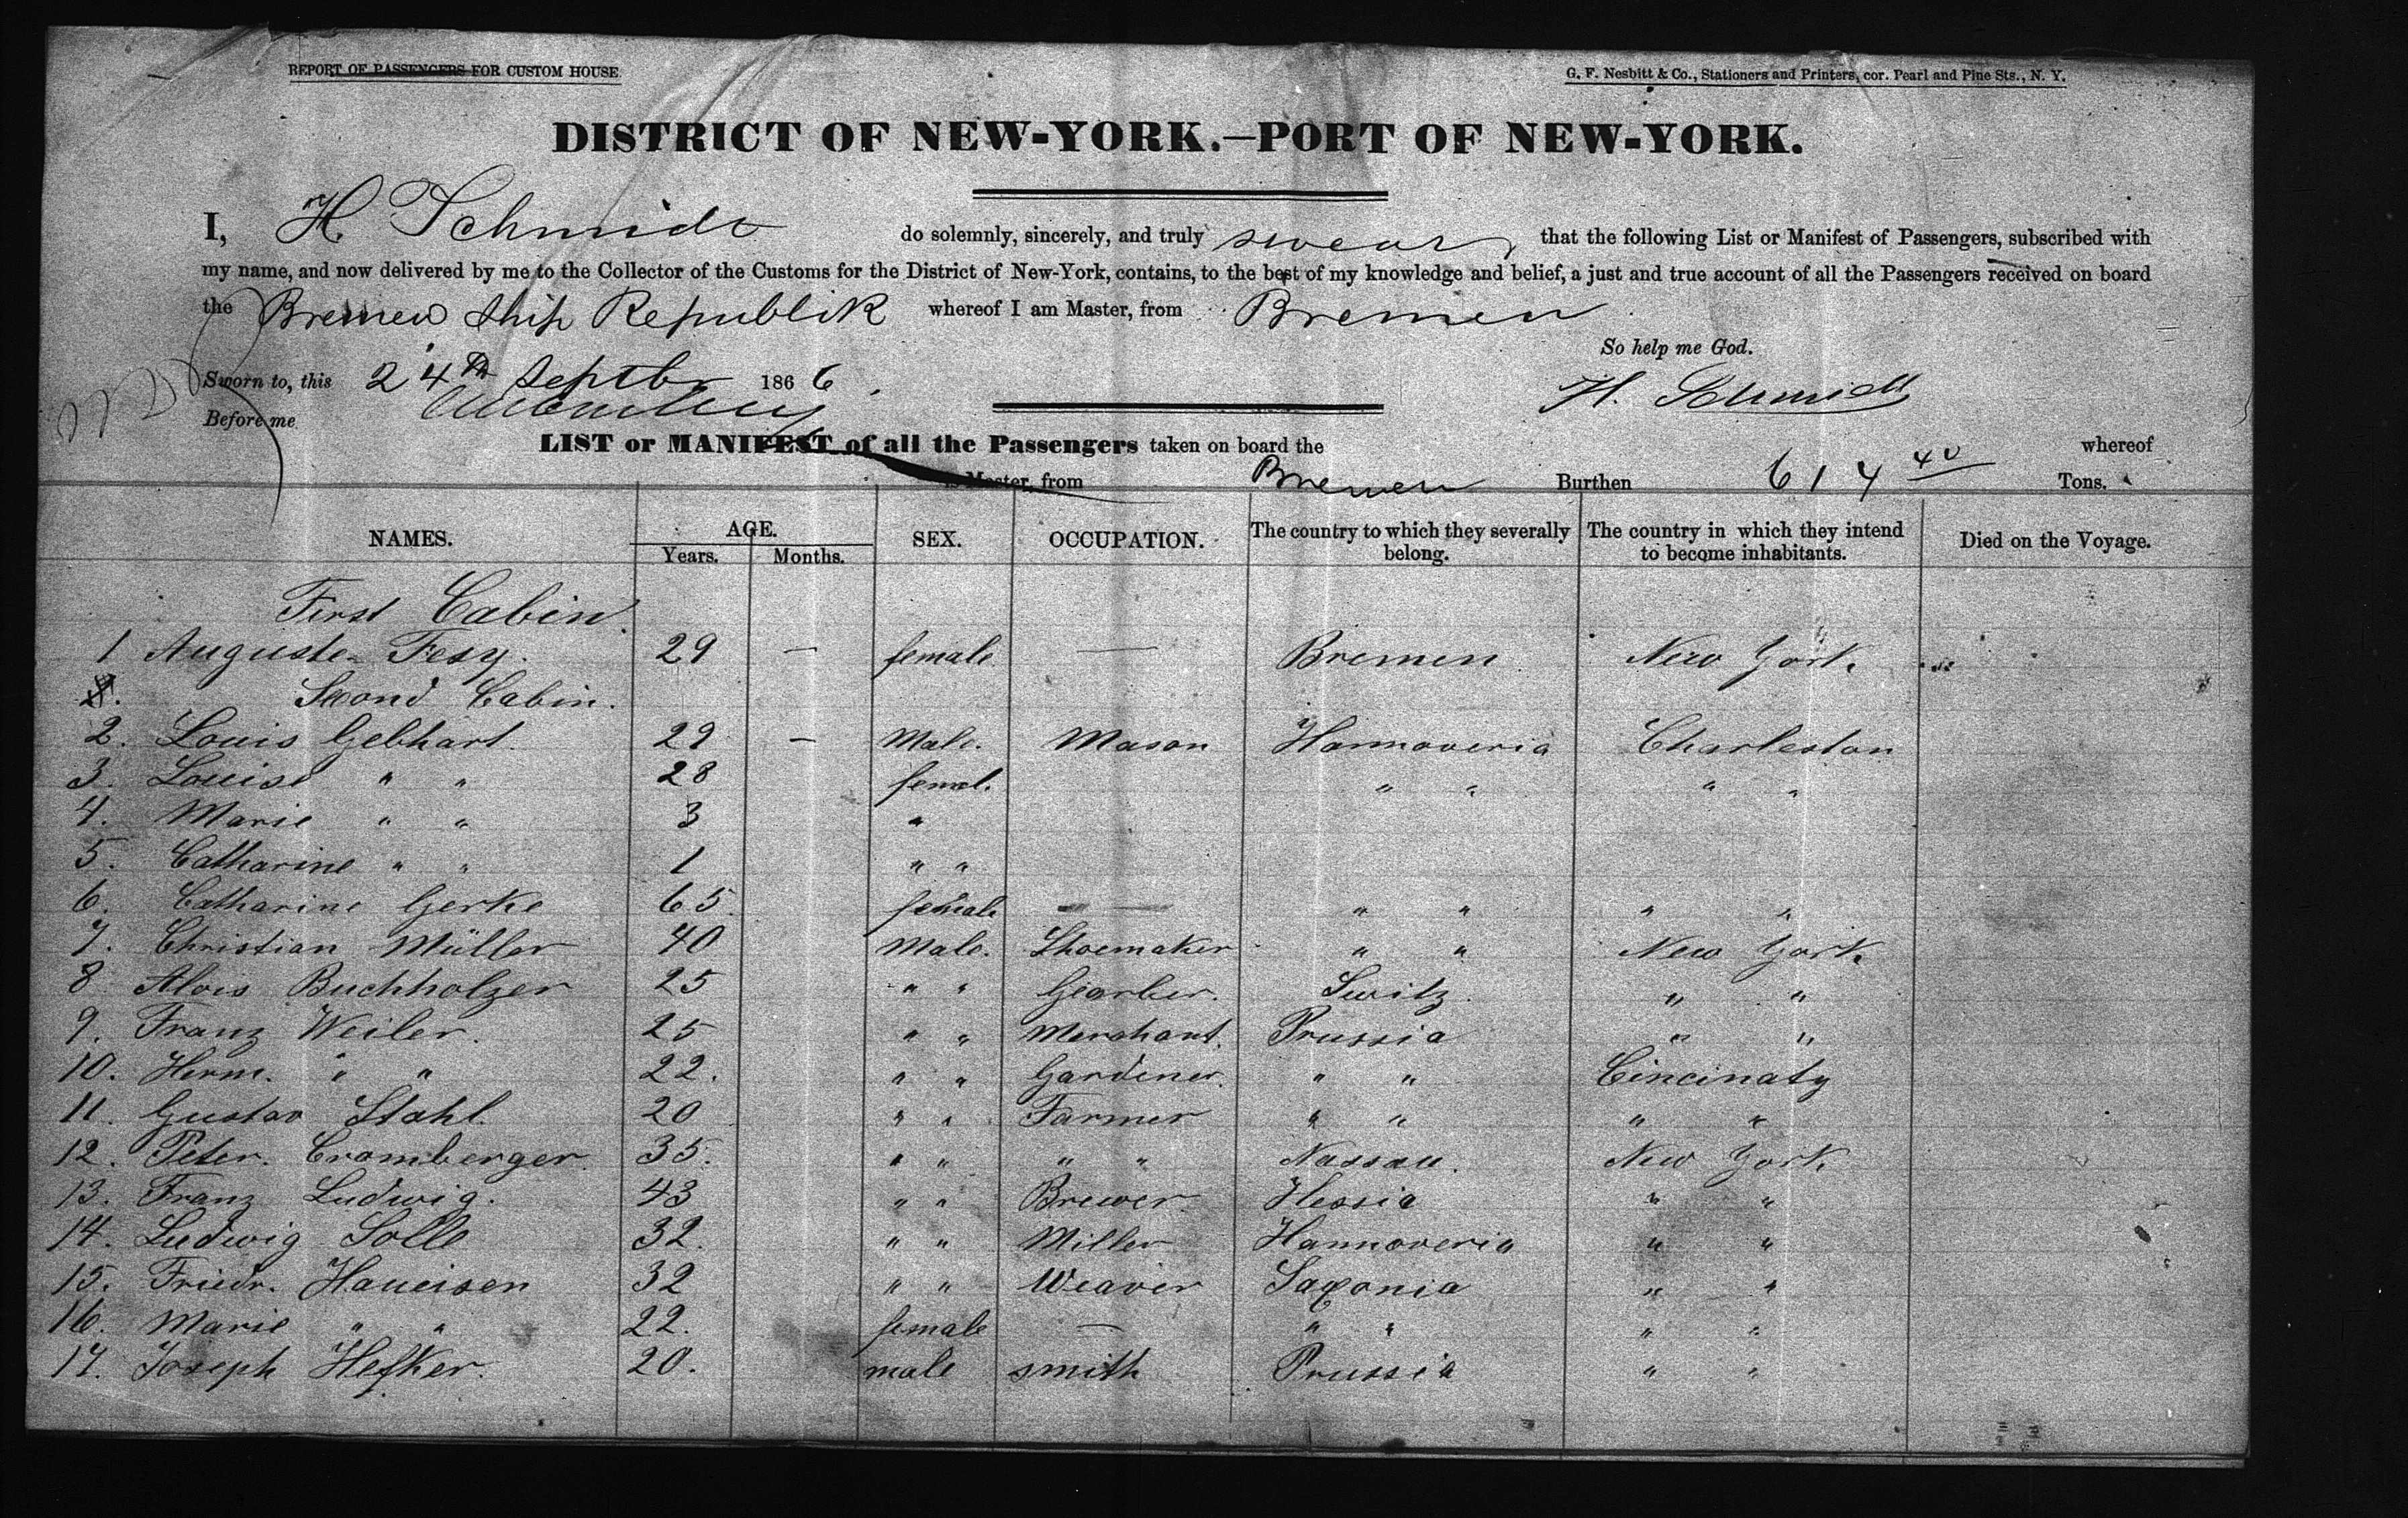 REPORT OF PASSENGERS FOR CUSTOM HOUSE
G. F. Nesbitt & Co., Stationers and Printers, cor. Pearl and Pine Sts., N. Y.
DISTRICT OF NEW-YORK.—PORT OF NEW-YORK.
I, H. Schmidt do solemnly, sincerely, and truly swear that the following List or Manifest of Passengers, subscribed with
my name, and now delivered by me to the Collector of the Customs for the District of New-York, contains, to the best of my knowledge and belief, a just and true account of all the Passengers received on board
the Bremen Ship Republik whereof I am Master, from Bremen
So help me God.
Sworn to, this 24th Septbr 1866.
H. Schmidt
Before me
LIST or MANIFEST of all the Passengers taken on board the whereof
is Master, from Bremen Burthen 614 40 Tons.
NAMES. AGE. Years. Months. SEX. OCCUPATION. The country to which they severally belong. The country in which they intend to become inhabitants. Died on the Voyage.
First Cabin.
1 Auguste Fesy. 29 — female — Bremen New York
2. Second Cabin.
2. Louis Gebhart. 29 — Male. Mason Hannoveria Charleston
3. Louise " " 28 femal. " " " "
4. Marie " " 3 "
5. Catharine " " 1 " "
6. Catharine Gerke 65. female — " " " "
7. Christian Müller 40 Male. Shoemaker " " New York
8 Alois Buchholzer 25 " " Gearber. Switz. " "
9. Franz Weiler. 25 " " Merchant. Prussia " "
10. Herm. " " 22. " " Gardener. " " Cincinaty
11. Gustav Stahl. 20 " " Farmer " " " "
12. Peter. Cramberger. 35. " " " " Nassau. New York
13. Franz Ludwig. 43 " " Brewer Hessia " "
14. Ludwig Solle 32. " " Miller Hannoveria " "
15. Friedr. Haueisen 32 " " Weaver Saxonia " "
16. Marie " " 22. female — " " " "
17. Joseph Hefker. 20. male smith Prussia " "